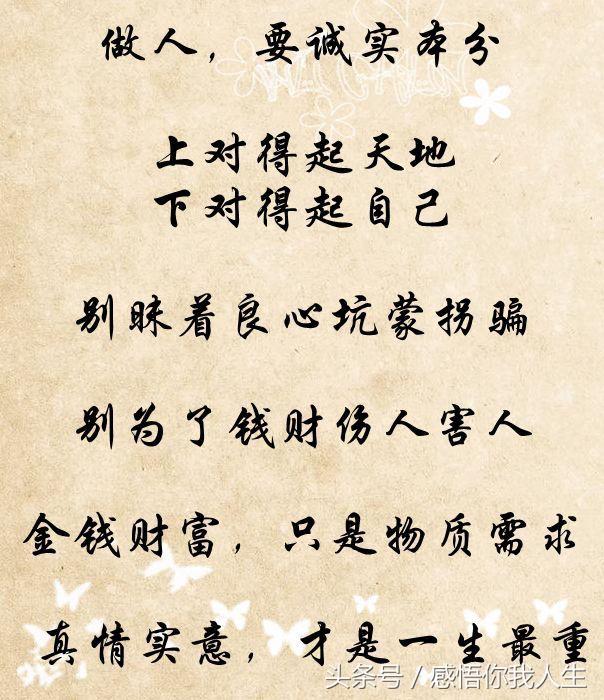 做人，要诚实本分
上对得起天地
下对得起自己
别昧着良心坑蒙拐骗
别为了钱财伤人害人
金钱财富，只是物质需求
真情实意，才是一生最重
头条号／感悟你我人生